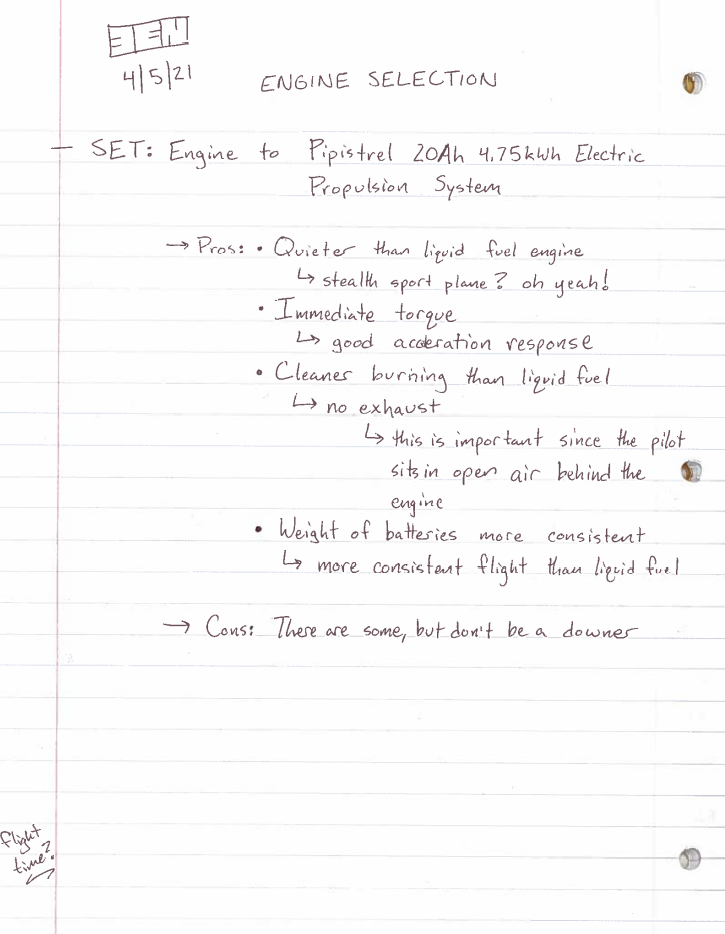 4/5/21
ENGINE SELECTION
— SET: Engine to Pipistrel 20Ah 4.75kWh Electric
Propulsion System
→ Pros: • Quieter than liquid fuel engine
↳ stealth sport plane? oh yeah!
• Immediate torque
↳ good acceleration response
• Cleaner burning than liquid fuel
↳ no exhaust
↳ this is important since the pilot
sits in open air behind the
engine
• Weight of batteries more consistent
↳ more consistent flight than liquid fuel
→ Cons: There are some, but don't be a downer
flight
time?